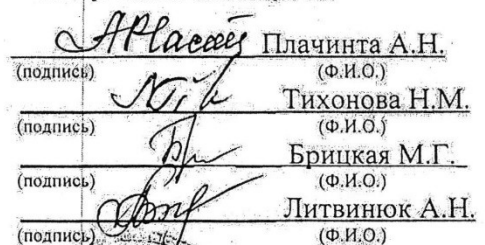 Плачинта А.Н.
(подпись) (Ф.И.О.)
Тихонова Н.М.
(подпись) (Ф.И.О.)
Брицкая М.Г.
(подпись) (Ф.И.О.)
Литвинюк А.Н.
(подпись) (Ф.И.О.)